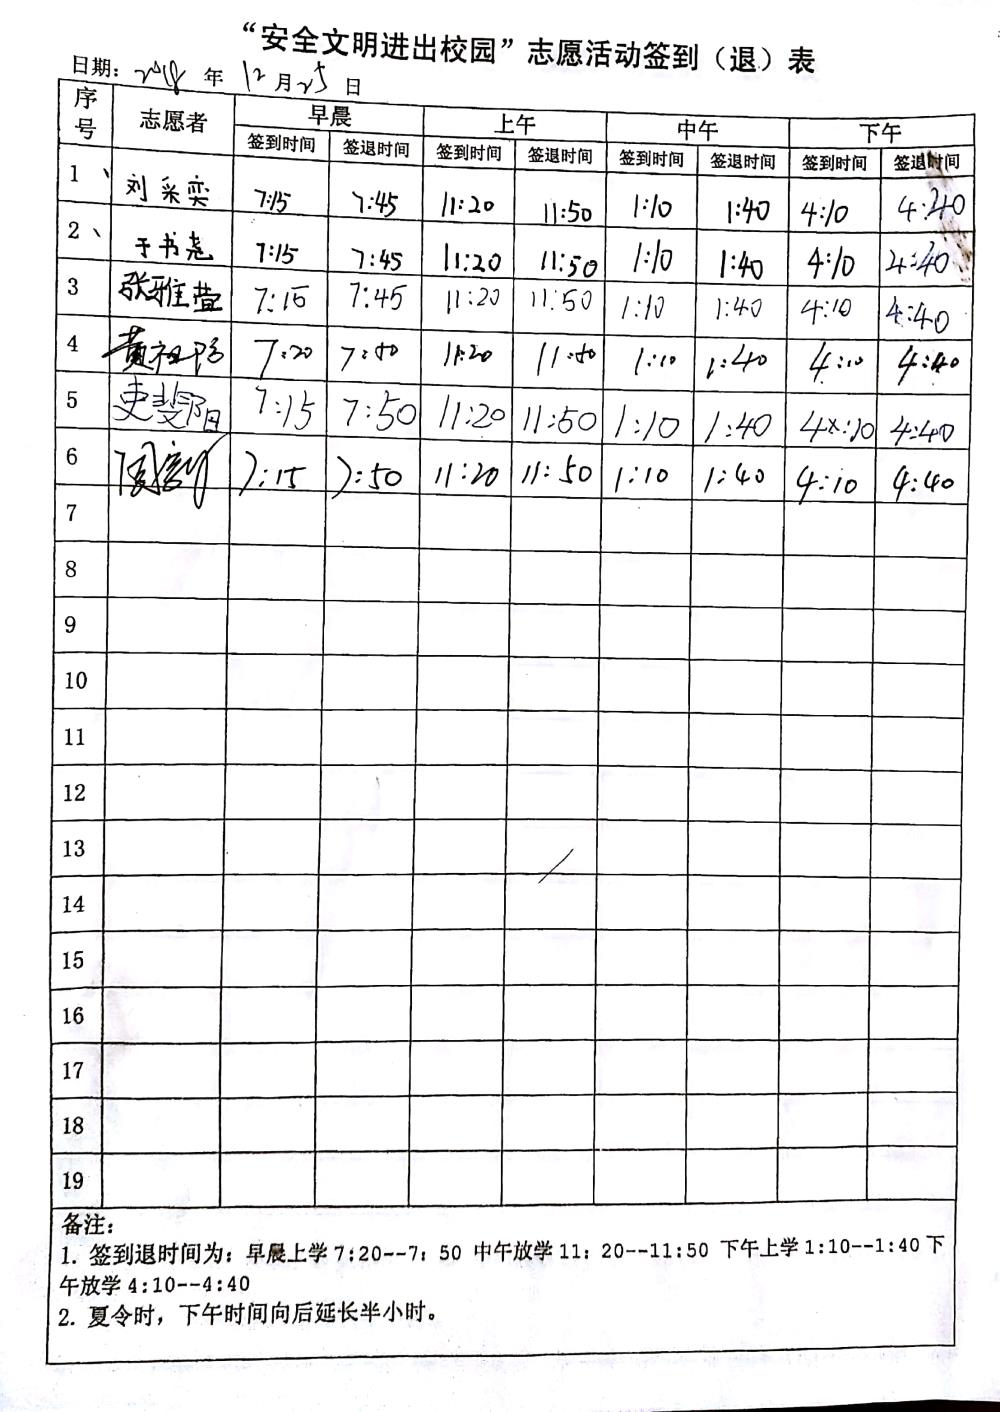 “安全文明进出校园”志愿活动签到（退）表
日期：2018 年 12 月 25 日
序号 志愿者 早晨 上午 中午 下午
签到时间 签退时间 签到时间 签退时间 签到时间 签退时间 签到时间 签退时间
1、 刘采奕 7:15 7:45 11:20 11:50 1:10 1:40 4:10 4:40
2、 于书尧 7:15 7:45 11:20 11:50 1:10 1:40 4:10 4:40
3 张雅萱 7:15 7:45 11:20 11:50 1:10 1:40 4:10 4:40
4 黄祖 7:20 7:50 11:20 11:50 1:10 1:40 4:10 4:40
5 7:15 7:50 11:20 11:50 1:10 1:40 4:10 4:40
6 7:15 7:50 11:20 11:50 1:10 1:40 4:10 4:40
7
8
9
10
11
12
13
14
15
16
17
18
19
备注：
1. 签到退时间为：早晨上学 7:20--7：50 中午放学 11：20--11:50 下午上学 1:10--1:40 下
午放学 4:10--4:40
2. 夏令时，下午时间向后延长半小时。